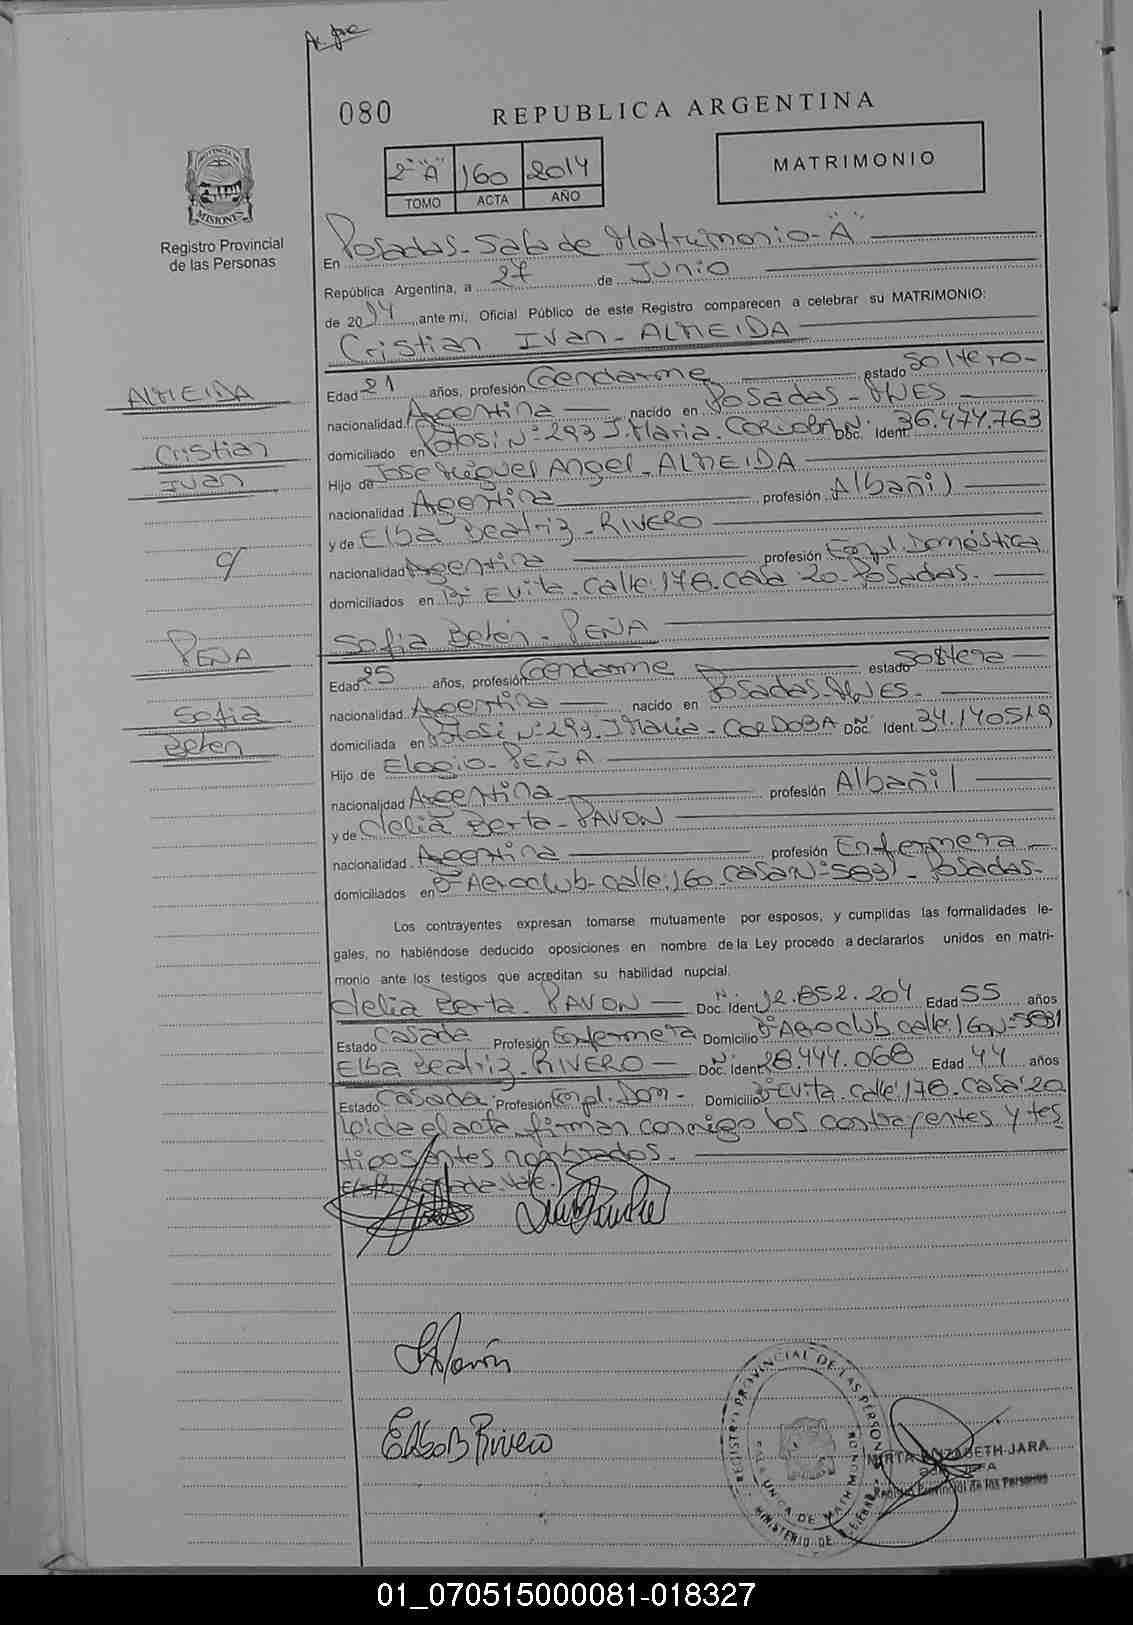 080
REPUBLICA ARGENTINA
2º "A" 160 2014
TOMO ACTA AÑO
MATRIMONIO
PROVINCIA DE
MISIONES
Registro Provincial
de las Personas
En Posadas - Sala de Matrimonio - "A"
República Argentina, a 27 de Junio
de 2014, ante mi, Oficial Público de este Registro comparecen a celebrar su MATRIMONIO:
Cristian Ivan - ALMEIDA
ALMEIDA
Cristian
Ivan
c/
PEÑA
Sofia
Belen
Edad 21 años, profesión Gendarme estado soltero -
nacionalidad Argentina nacido en Posadas - MNES
domiciliado en Potosi Nº 293 J. Maria. CORDOBA Nº Doc. Ident. 36.474.763
Hijo de José Miguel Angel - ALMEIDA
nacionalidad Argentina profesión Albañil
y de Elba Beatriz - RIVERO
nacionalidad Argentina profesión Empl. Doméstica
domiciliados en Bº Evita. Calle: 178. Casa: 20 - Posadas.
Sofia Belén - PEÑA
Edad 25 años, profesión Gendarme estado soltera
nacionalidad Argentina nacido en Posadas - MNES.
domiciliada en Potosi Nº 293. J. Maria - CORDOBA Nº Doc. Ident. 34.140519
Hijo de Elogio - PEÑA
nacionalidad Argentina profesión Albañil
y de Clelia Berta - PAVON
nacionalidad Argentina profesión Enfermera
domiciliados en Bº Aeroclub - calle: 160. Casa Nº 5831 - Posadas.
Los contrayentes expresan tomarse mutuamente por esposos, y cumplidas las formalidades le-
gales, no habiéndose deducido oposiciones en nombre de la Ley procedo a declararlos unidos en matri-
monio ante los testigos que acreditan su habilidad nupcial.
Clelia Berta - PAVON Nº Doc. Ident. 12.852.204 Edad 55 años
Estado Casada Profesión Enfermera Domicilio Bº Aeroclub calle: 160 Nº 5831
Elba Beatriz - RIVERO Nº Doc. Ident. 28.444.068 Edad 44 años
Estado Casada Profesión Empl. Dom - Domicilio Bº Evita. Calle: 178. Casa: 20
leida el acta, firman conmigo los contrayentes y tes
tigos antes nombrados.
Elba B Rivero
REGISTRO PROVINCIAL DE LAS PERSONAS
MINISTERIO DE
MIRTA ELIZABETH JARA
Registro Provincial de las Personas
01_070515000081-018327